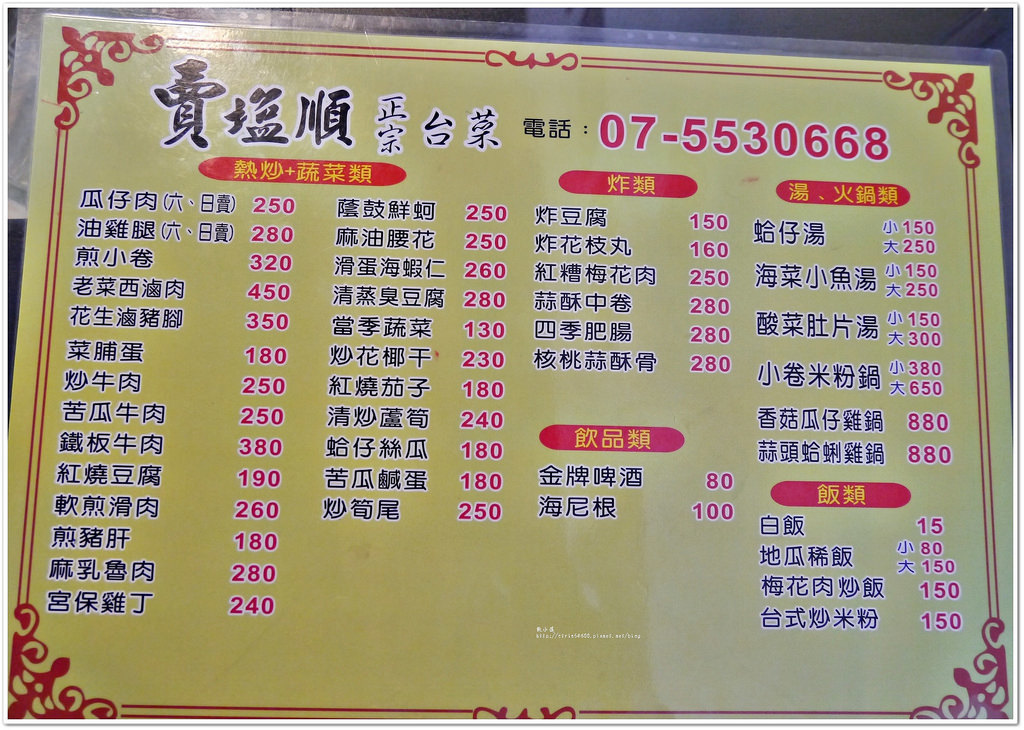 賣塩順 正宗台菜 電話：07-5530668
熱炒+蔬菜類
瓜仔肉(六、日賣) 250
油雞腿(六、日賣) 280
煎小卷 320
老菜西滷肉 450
花生滷豬腳 350
菜脯蛋 180
炒牛肉 250
苦瓜牛肉 250
鐵板牛肉 380
紅燒豆腐 190
軟煎滑肉 260
煎豬肝 180
麻乳魯肉 280
宮保雞丁 240
蔭鼓鮮蚵 250
麻油腰花 250
滑蛋海蝦仁 260
清蒸臭豆腐 280
當季蔬菜 130
炒花椰干 230
紅燒茄子 180
清炒蘆筍 240
蛤仔絲瓜 180
苦瓜鹹蛋 180
炒筍尾 250
炸類
炸豆腐 150
炸花枝丸 160
紅糟梅花肉 250
蒜酥中卷 280
四季肥腸 280
核桃蒜酥骨 280
飲品類
金牌啤酒 80
海尼根 100
湯、火鍋類
蛤仔湯 小150 大250
海菜小魚湯 小150 大250
酸菜肚片湯 小150 大300
小卷米粉鍋 小380 大650
香菇瓜仔雞鍋 880
蒜頭蛤蜊雞鍋 880
飯類
白飯 15
地瓜稀飯 小80 大150
梅花肉炒飯 150
台式炒米粉 150